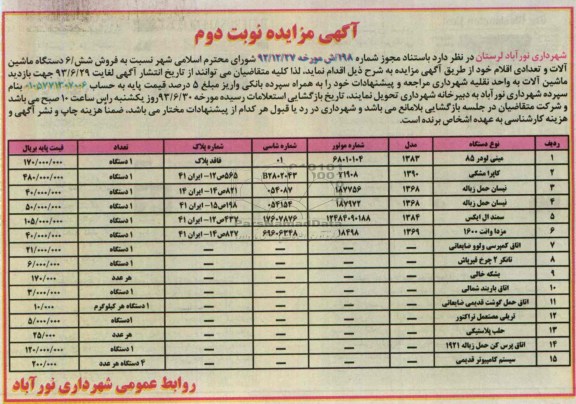 آگهی مزایده نوبت دوم
شهرداری نورآباد لرستان در نظر دارد باستناد مجوز شماره ۱۹۸/ش مورخه ۹۲/۱۲/۲۷ شورای محترم اسلامی شهر نسبت به فروش شش/۶ دستگاه ماشین
آلات و تعدادی اقلام خود از طریق آگهی مزایده به شرح ذیل اقدام نماید، لذا کلیه متقاضیان می توانند از تاریخ انتشار آگهی لغایت ۹۳/۶/۲۹ جهت بازدید
ماشین آلات به واحد نقلیه شهرداری مراجعه و پیشنهادات خود را به همراه سپرده بانکی واریز مبلغ ۵ درصد قیمت پایه به حساب ۰۱۰۵۷۷۱۳۰۷۰۰۶ بنام
سپرده شهرداری نورآباد به دبیرخانه شهرداری تحویل نمایند، تاریخ بازگشایی استعلامات رسیده مورخه ۹۳/۶/۳۰ روز یکشنبه راس ساعت ۱۰ صبح می باشد
و شرکت متقاضیان در جلسه بازگشایی بلامانع می باشد و شهرداری در رد یا قبول هر کدام از پیشنهادات مختار می باشد. ضمنا هزینه چاپ و نشر آگهی و
هزینه کارشناسی به عهده اشخاص برنده است.
ردیف نوع دستگاه مدل شماره موتور شماره شاسی شماره پلاک تعداد قیمت پایه بریال
۱ مینی لودر ۸۵ ۱۳۸۳ ۶۸۰۱۰۱۰۴ ۰۱ فاقد پلاک ۱ دستگاه ۱۷۰/۰۰۰/۰۰۰
۲ کاپرا مشکی ۱۳۹۰ ۲۱۹۰۸ B۲۸۰۲۰۴۳ ۵۶۵ص۱۲- ایران ۴۱ ۱ دستگاه ۴۸۰/۰۰۰/۰۰۰
۳ نیسان حمل زباله ۱۳۶۸ ۱۸۷۷۵۶ ۰۵۴۰۸۷ ۸۲۱ص۱۴- ایران ۴۱ ۱ دستگاه ۴۰/۰۰۰/۰۰۰
۴ نیسان حمل زباله ۱۳۶۸ ۱۸۷۹۷۲ ۰۵۴۱۵۴ ۱۹۸ص۱۵- ایران ۴۱ ۱ دستگاه ۵۰/۰۰۰/۰۰۰
۵ سمند ال ایکس ۱۳۸۴ ۱۲۴۸۴۰۹۰۱۸۸ ۱۷۶۰۷۸۷۶ ۴۳۷ص۱۲- ایران ۴۱ ۱ دستگاه ۱۰۵/۰۰۰/۰۰۰
۶ مزدا وانت ۱۶۰۰ ۱۳۶۹ ۱۸۴۹۸ ۶۹۶۰۶۳۴۸ ۸۲۷ص۱۴- ایران ۴۱ ۱ دستگاه ۴۰/۰۰۰/۰۰۰
۷ اتاق کمپرسی ولوو ضایعاتی — — — — ۱ دستگاه ۲۱/۰۰۰/۰۰۰
۸ تانکر ۲ چرخ قیرپاش — — — — ۱ دستگاه ۶/۰۰۰/۰۰۰
۹ بشکه خالی — — — — هر عدد ۱۷۰/۰۰۰
۱۰ اتاق باربند شمالی — — — — ۱ دستگاه ۳/۰۰۰/۰۰۰
۱۱ اتاق حمل گوشت قدیمی ضایعاتی — — — — ۱ دستگاه هر کیلوگرم ۱۰/۰۰۰
۱۲ تریلی مستعمل تراکتور — — — — ۱ دستگاه ۵/۰۰۰/۰۰۰
۱۳ حلب پلاستیکی — — — — هر عدد ۲۵/۰۰۰
۱۴ اتاق پرس کن حمل زباله ۱۹۲۱ — — — — ۱ دستگاه ۱۲۰/۰۰۰/۰۰۰
۱۵ سیستم کامپیوتر قدیمی — — — — ۴ دستگاه هر عدد ۲۰۰/۰۰۰
روابط عمومی شهرداری نورآباد